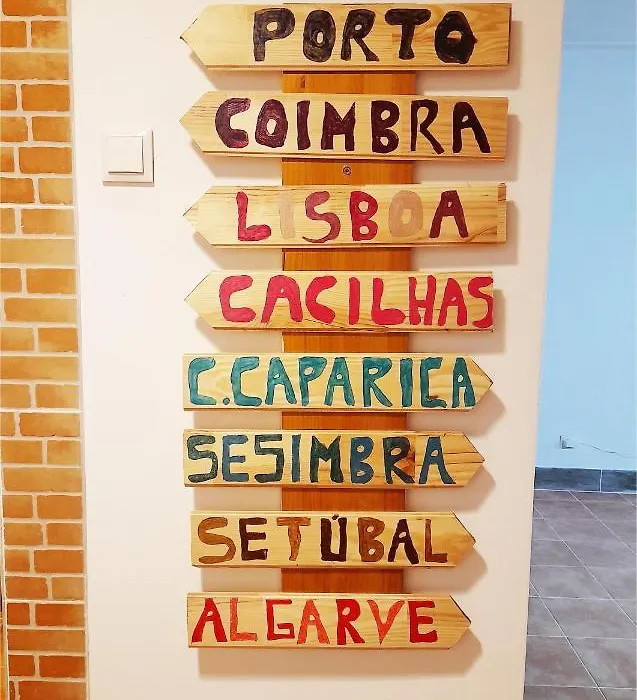 PORTO
COIMBRA
LISBOA
CACILHAS
C.CAPARICA
SESIMBRA
SETÚBAL
ALGARVE